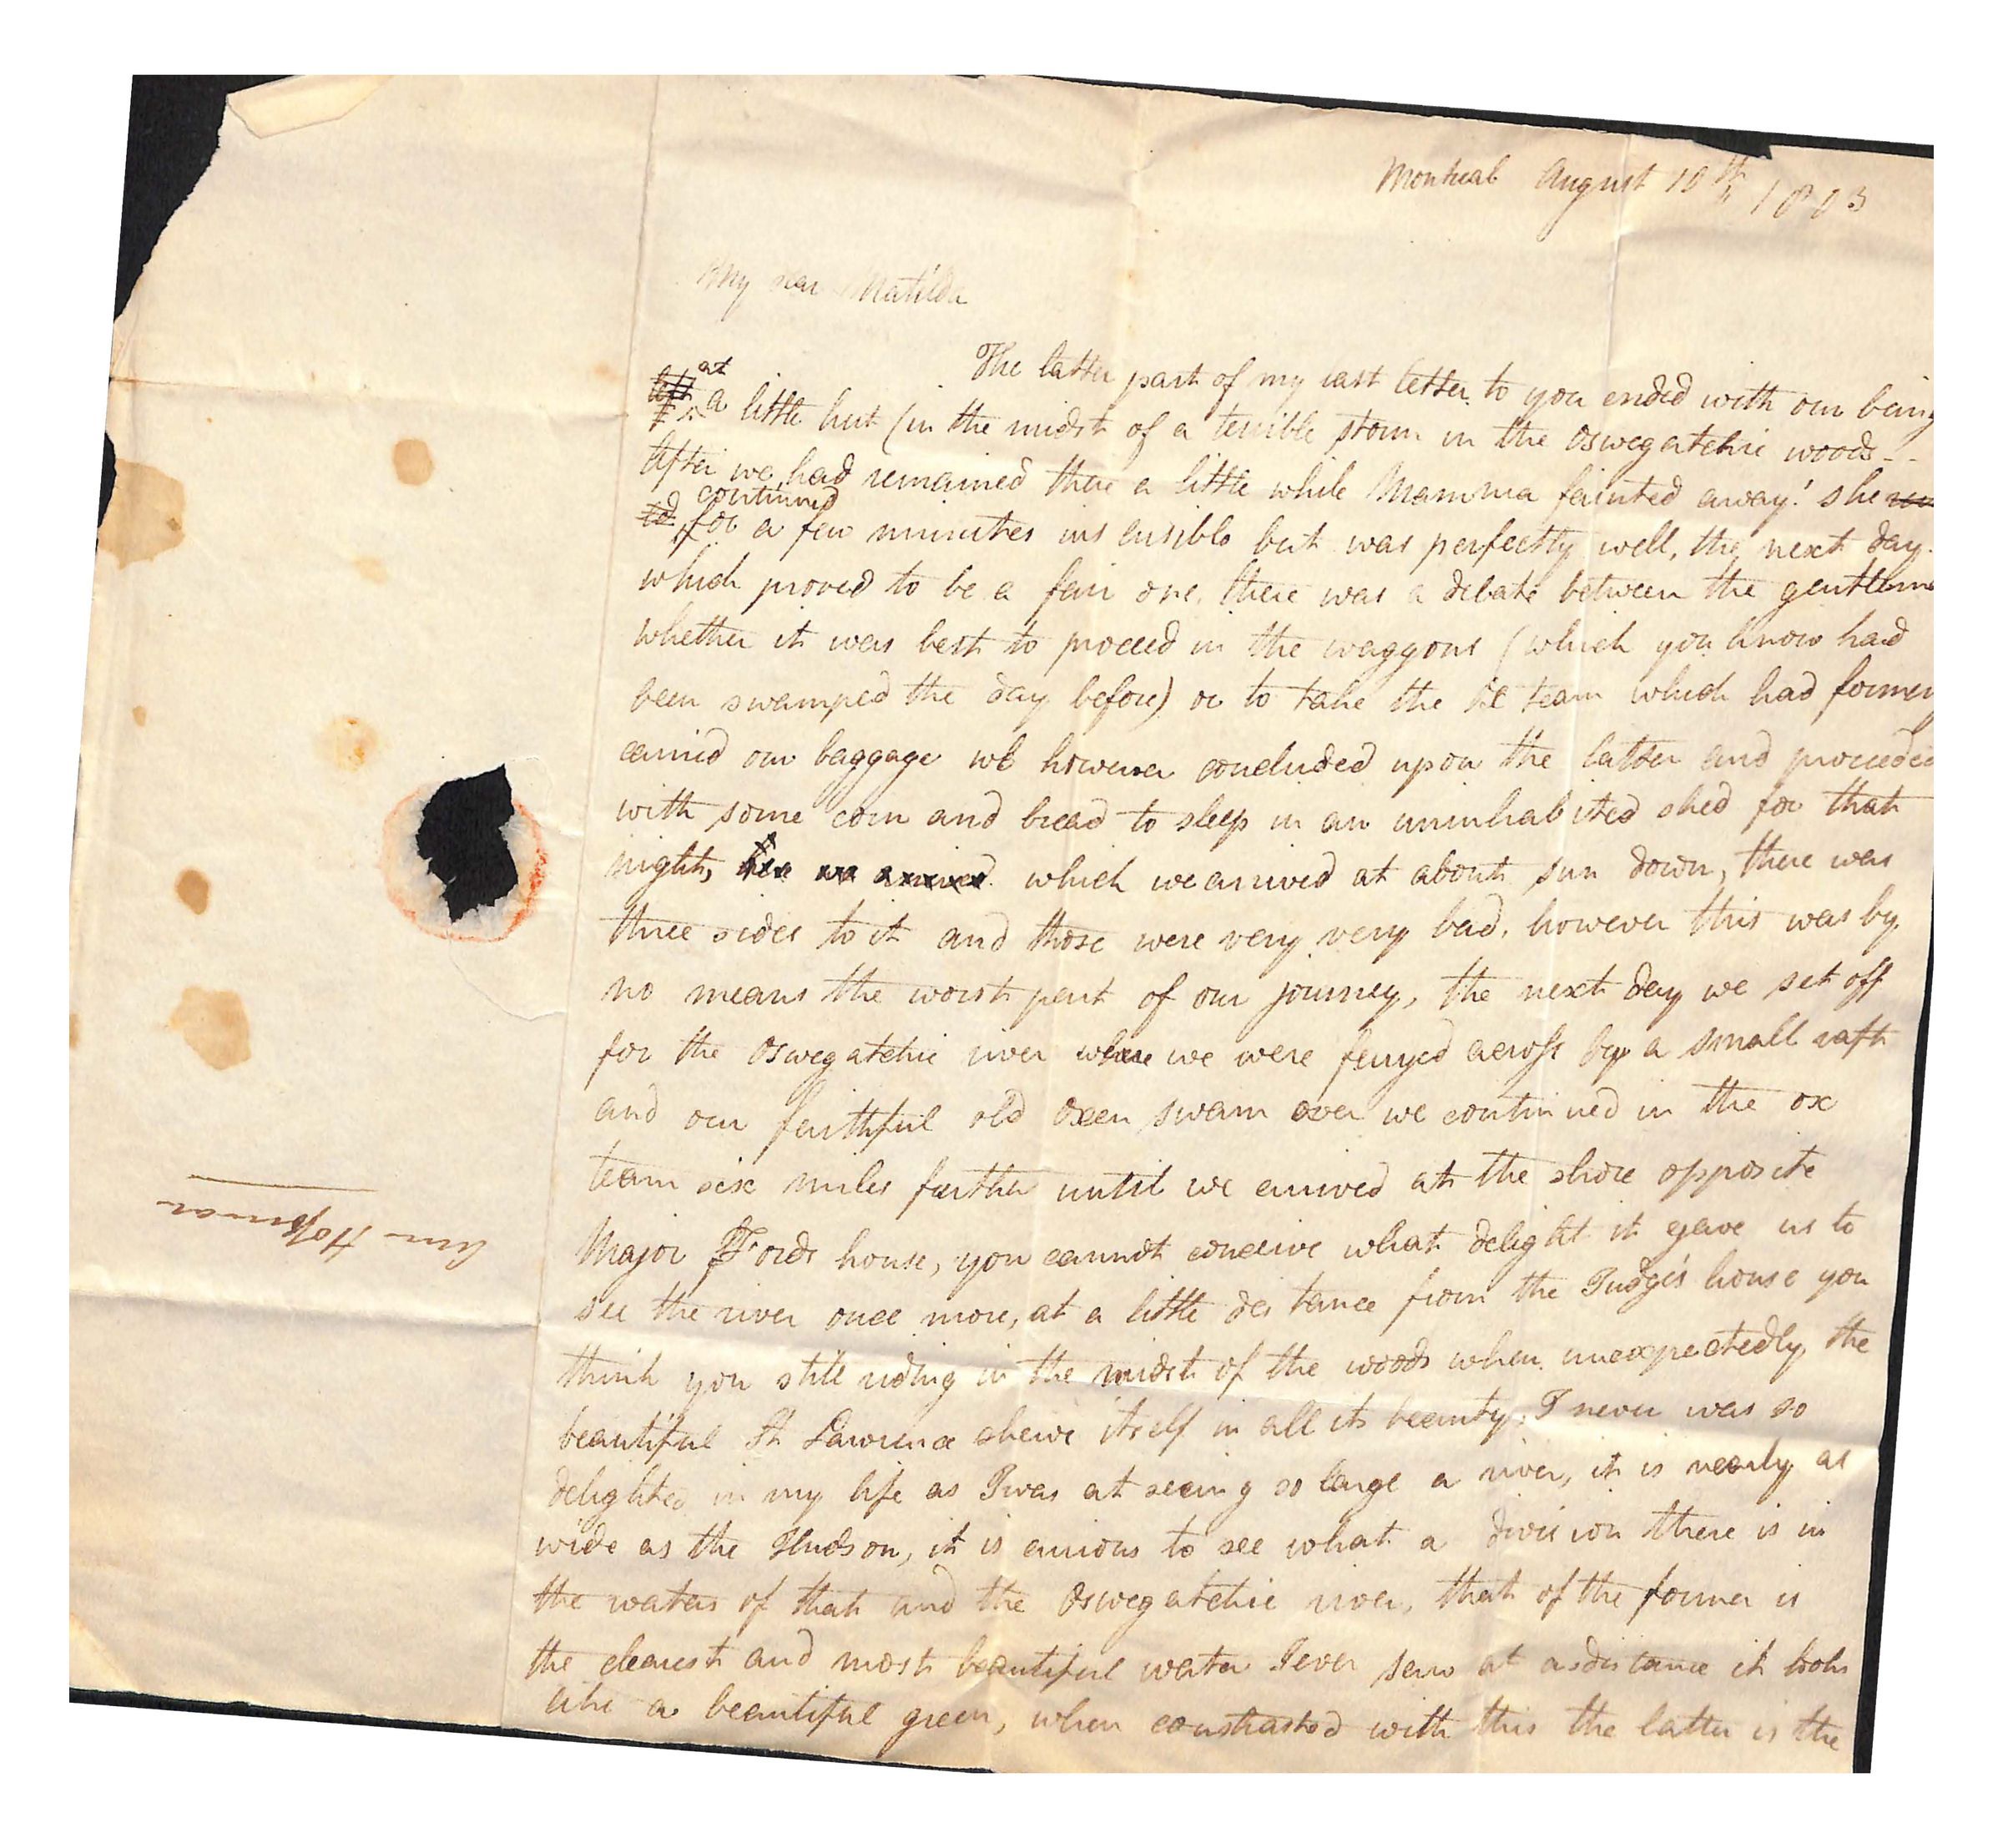 Montreal August 10th 1803
My dear Matilda
The latter part of my last letter to you ended with our being
left at a little hut (in the midst of a terrible storm in the Oswegatchie woods - -
After we had remained there a little while Mamma fainted away! she
continued for a few minutes insensible but was perfectly well, the next day.
which proved to be a fair one, there was a debate between the gentleme
whether it was best to proceed in the waggons (which you know had
been swamped the day before) or to take the ox team which had former
carried our baggage we however concluded upon the latter and proceeded
with some corn and bread to sleep in an uninhabited shed for that
night, here we arrived which we arrived at about sun down, there was
three sides to it and those were very very bad, however this was by
no means the worst part of our journey, the next day we set off
for the Oswegatchie river where we were ferryed across by a small raft
and our faithful old oxen swam over we continued in the ox
team six miles further until we arrived at the shore opposite
Major Fords house, you cannot conceive what delight it gave us to
see the river once more, at a little distance from the Judge's house you
think you still riding in the midst of the woods when unexpectedly the
beautiful St Lawrence shews itself in all its beauty, I never was so
delighted in my life as I was at seeing so large a river, it is nearly as
wide as the Hudson, it is curious to see what a division there is in
the waters of that and the Oswegatchie river, that of the former is
the clearest and most beautiful water I ever saw at a distance it looks
like a beautiful green, when constrasted with this the latter is the
Ann Hoffman